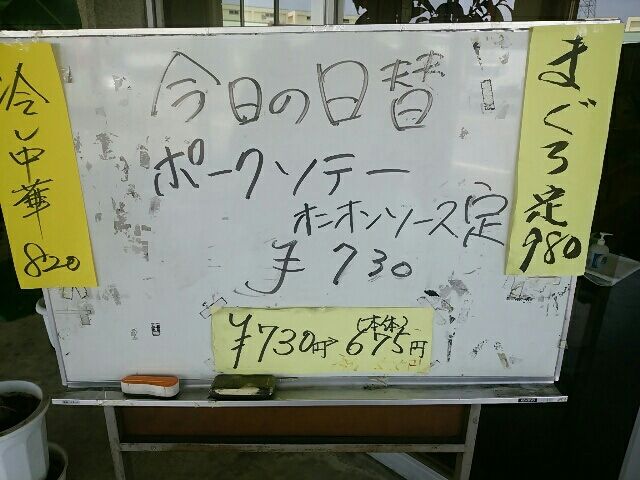 今日の日替
ポークソテー
オニオンソース定
¥730
¥730円→(本体)675円
冷し中華820
まぐろ定980